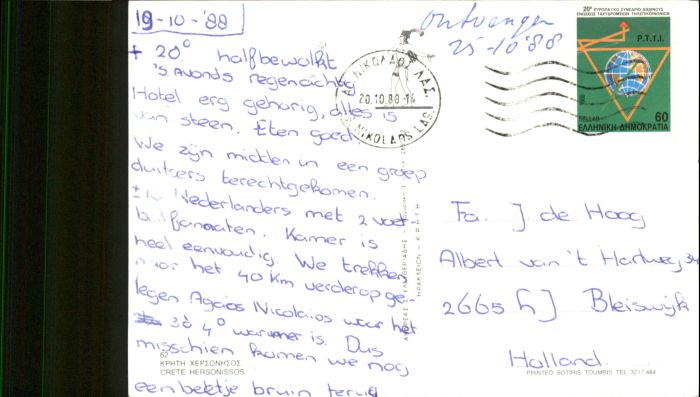 19-10-'88
+ 20° halfbewolkt
's avonds regenachtig
Hotel erg gehorig, alles is
van steen. Eten goed
We zijn midden in een groep
duitsers terechtgekomen.
Nederlanders met 2 voet-
balfanaten. Kamer is
heel eenvoudig. We trekken
naar het 40 km verderop ge-
legen Agaios Nicolaios waar het
3 à 4° warmer is. Dus
misschien komen we nog
een beetje bruin terug
62
ΚΡΗΤΗ ΧΕΡΣΟΝΗΣΟΣ
CRETE HERSONISSOS
ΗΡΑΚΛΕΙΟΝ - ΚΡΗΤΗ
ontvangen
25-10'88
ΑΓ. ΝΙΚΟΛΑΟΣ ΛΑΣ.
20.10.88-14
NIKOLAOS LAS.
20° ΕΥΡΩΠΑΪΚΟ ΣΥΝΕΔΡΙΟ ΔΙΕΘΝΟΥΣ
ΕΝΩΣΕΩΣ ΤΑΧΥΔΡΟΜΕΙΩΝ ΤΗΛΕΠΙΚΟΙΝΩΝΙΩΝ
P.T.T.I.
1988
HELLAS 60
ΕΛΛΗΝΙΚΗ ΔΗΜΟΚΡΑΤΙΑ
Fa. J de Hoog
Albert van 't Hartweg 34
2665 hJ Bleiswijk
Holland.
PRINTED SOTIRIS TOUMBIS TEL. 3217 484